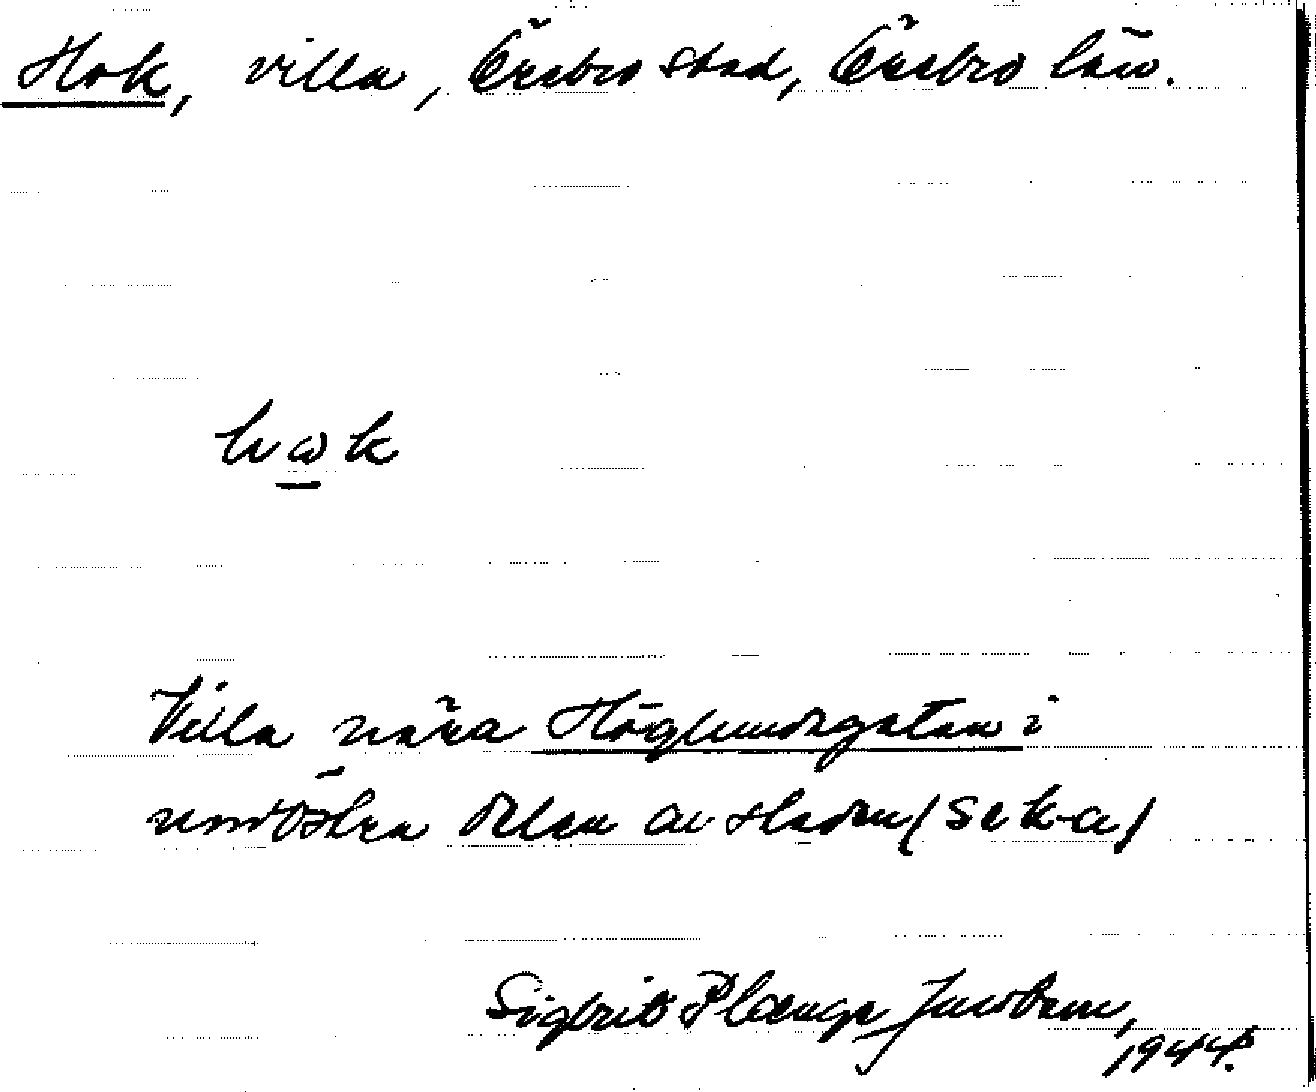 Hok, villa, Örebro stad, Örebro län.
hωk
Villa nära Höglundsgatan i
nordöstra delen av staden (Se k-a)
Sigbrit Plænge Jacobson,
1944.